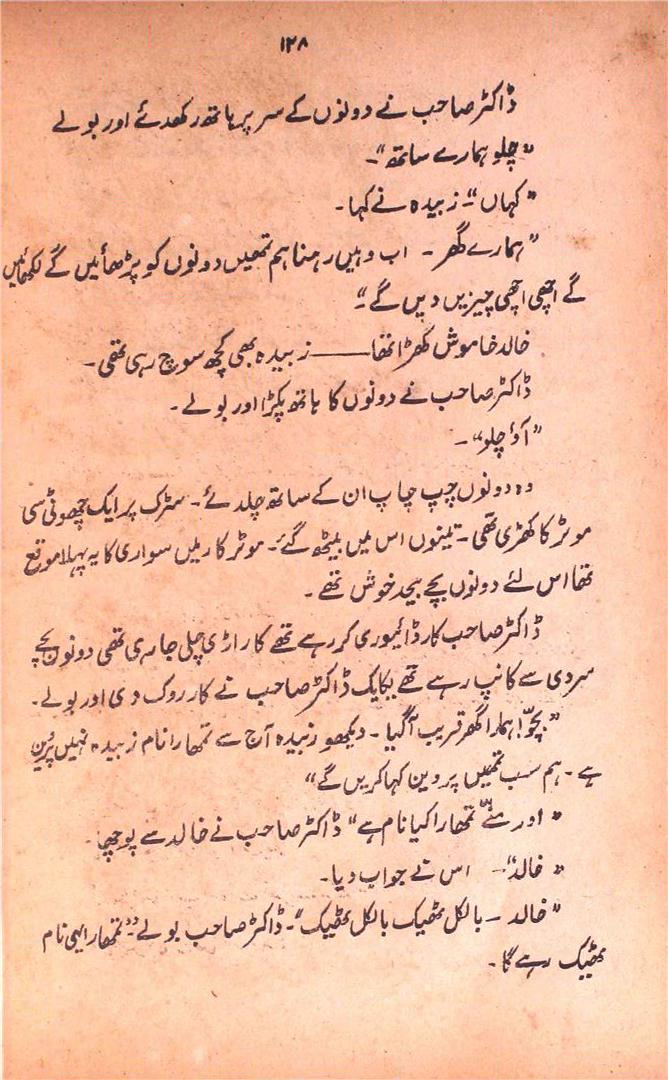 ۱۲۸
ڈاکٹر صاحب نے دونوں کے سر پر ہاتھ رکھدئے اور بولے
"چلو ہمارے ساتھ"۔
"کہاں"۔ زبیدہ نے کہا۔
"ہمارے گھر۔ اب وہیں رہنا ہم تمھیں دونوں کو پڑھائیں گے لکھائیں
گے اچھی اچھی چیزیں دیں گے۔"
خالد خاموش کھڑا تھا——زبیدہ بھی کچھ سوچ رہی تھی۔
ڈاکٹر صاحب نے دونوں کا ہاتھ پکڑا اور بولے۔
"آؤ چلو"۔
وہ دونوں چپ چاپ ان کے ساتھ چلدئے۔ سڑک پر ایک چھوٹی سی
موٹر کا کھڑی تھی۔ تینوں اس میں بیٹھ گئے۔ موٹر کار میں سواری کا یہ پہلا موقع
تھا اس لئے دونوں بچے بیحد خوش تھے۔
ڈاکٹر صاحب کار ڈائیوری کر رہے تھے کار اڑی چلی جا رہی تھی دونوں بچے
سردی سے کانپ رہے تھے یکایک ڈاکٹر صاحب نے کار روک دی اور بولے۔
"بچّو! ہمارا گھر قریب آگیا۔ دیکھو زبیدہ آج سے تمھارا نام زبیدہ نہیں پروین
ہے۔ ہم سب تمھیں پروین کہا کریں گے"
"اور منّے تمھارا کیا نام ہے" ڈاکٹر صاحب نے خالد سے پوچھا۔
"خالد"۔ اس نے جواب دیا۔
"خالد۔ بالکل ٹھیک بالکل ٹھیک"۔ ڈاکٹر صاحب بولے۔ "تمھارا یہی نام
ٹھیک رہے گا۔